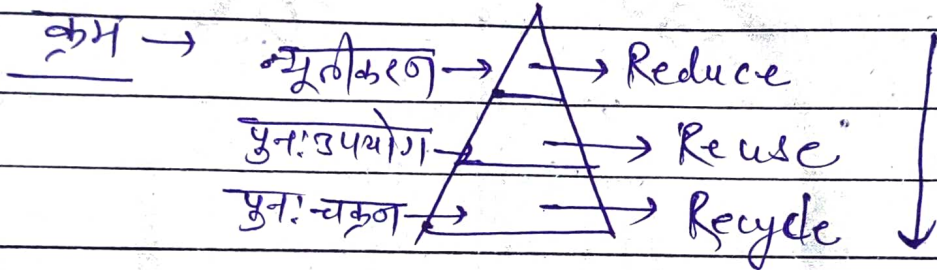 क्रम →
न्यूनीकरण → → Reduce
पुन: उपयोग → → "Reuse"
पुन: चक्रन → → Recycle